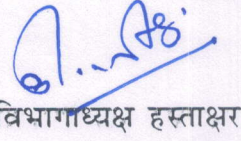 विभागाध्यक्ष हस्ताक्षर